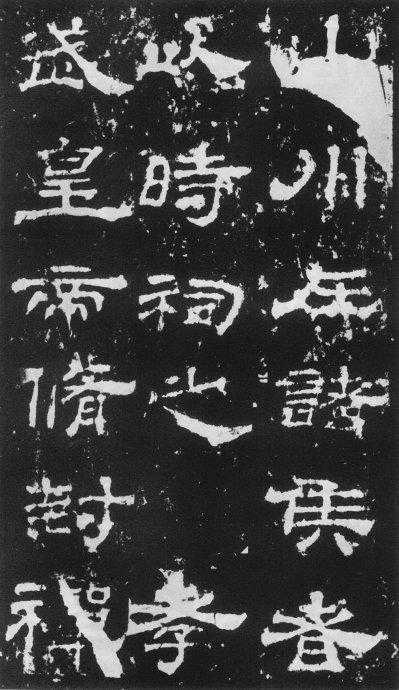 山川在諸侯者
以時祠之　孝
武皇帝脩封禪